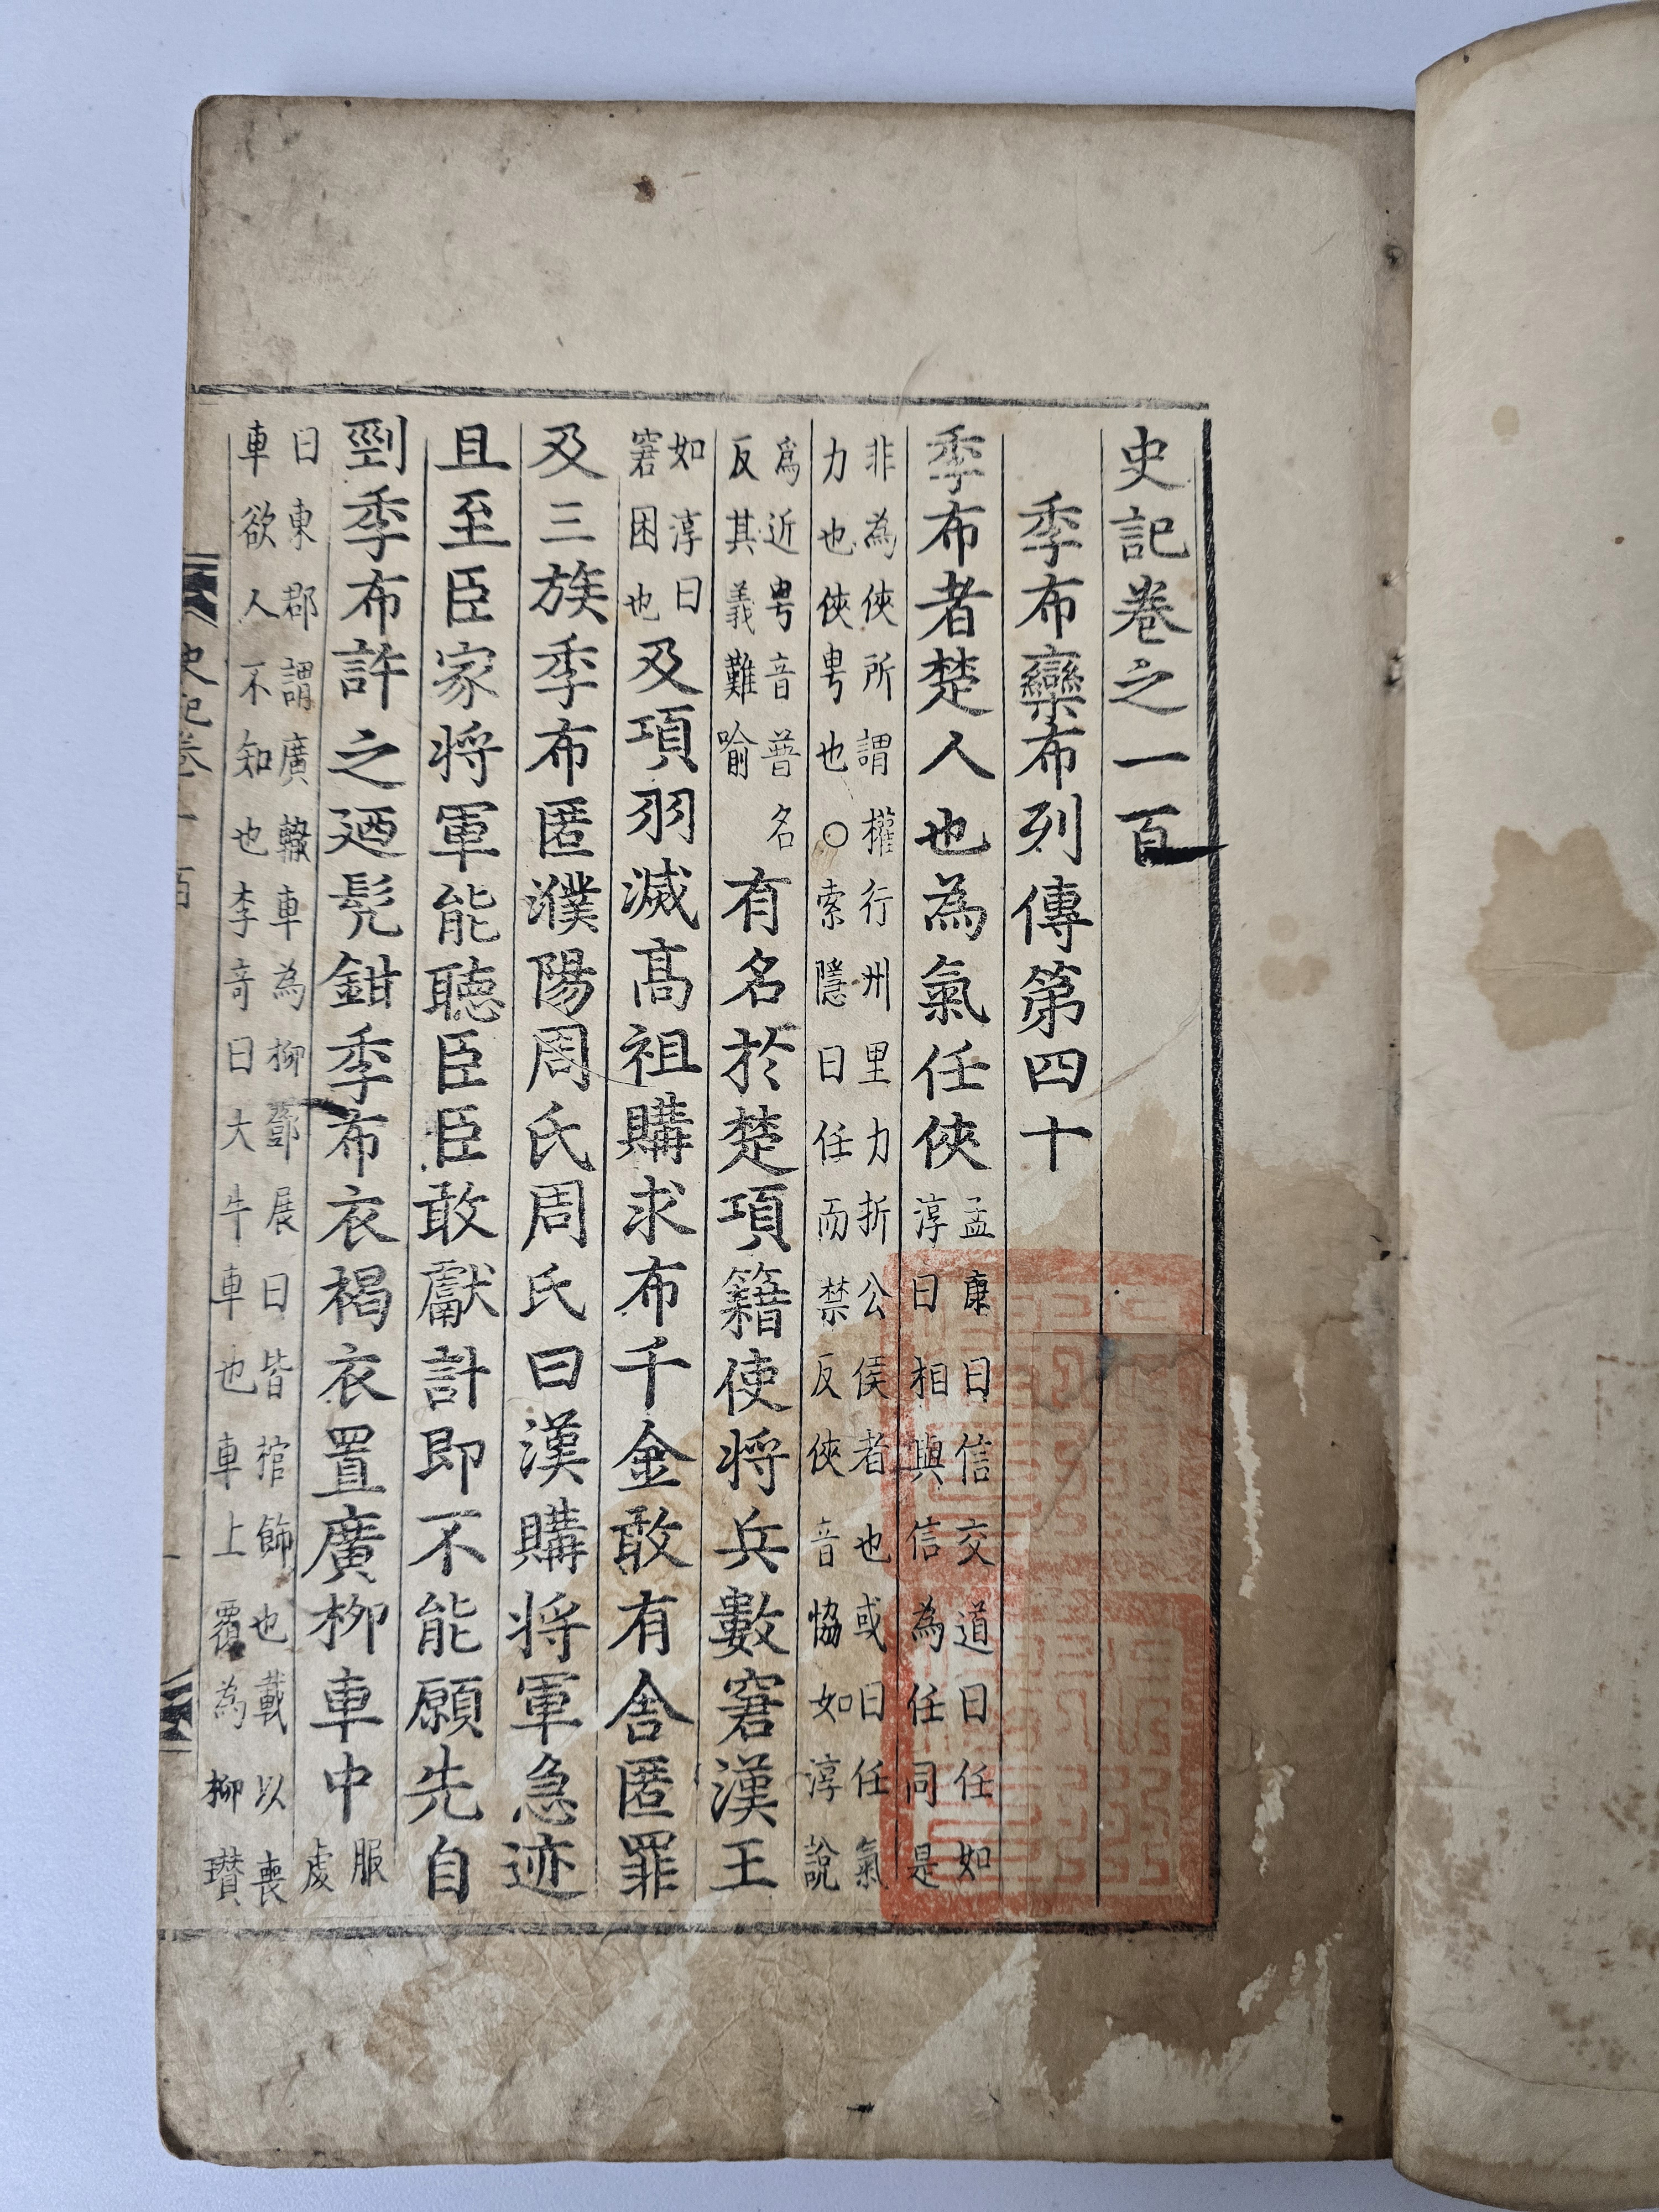 史記卷之一百
季布欒布列傳第四十
季布者楚人也為氣任俠
孟康曰信交道曰任如
淳曰相與信為任同是
非為俠所謂權行州里力折公侯者也或曰任氣
力也俠甹也○索隱曰任而禁反俠音恊如淳說
爲近甹音普名
反其義難喻
有名於楚項籍使将兵數窘漢王
如淳曰
窘困也
及項羽滅髙祖購求布千金敢有舍匿罪
及三族季布匿濮陽周氏周氏曰漢購将軍急迹
且至臣家将軍能聽臣臣敢獻計即不能願先自
剄季布許之廼髠鉗季布衣褐衣置廣栁車中
服
虔
曰東郡謂廣轍車為栁鄧展曰皆棺飾也載以喪
車欲人不知也李竒曰大牛車也車上覆為栁瓚
史記卷一百
一